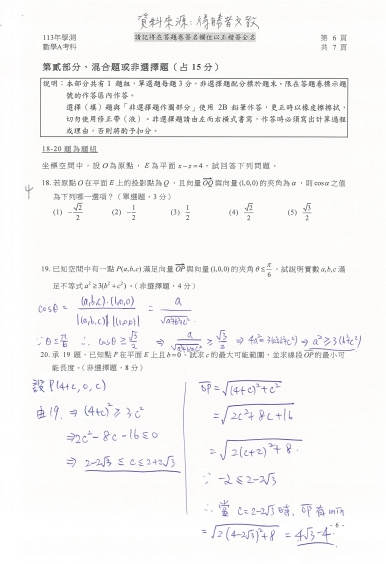 資料來源:得勝者文教
113年學測
數學A考科
請記得在答題卷簽名欄位以正楷簽全名
第 6 頁
共 7 頁
第貳部分、混合題或非選擇題(占15分)
說明:本部分共有 1 題組,單選題每題 3 分,非選擇題配分標於題末。限在答題卷標示題號的作答區內作答。
選擇(填)題與「非選擇題作圖部分」使用 2B 鉛筆作答,更正時以橡皮擦擦拭,切勿使用修正帶(液)。非選擇題請由左而右橫式書寫,作答時必須寫出計算過程或理由,否則將酌予扣分。
18-20 題為題組
坐標空間中,設 O 為原點,E 為平面 x−z=4,試回答下列問題。
4
18. 若原點 O 在平面 E 上的投影點為 Q,且向量 OQ 與向量 (1,0,0) 的夾角為 α,則 cos α 之值
為下列哪一選項?(單選題,3 分)
(1) −√2/2 (2) −1/2 (3) 1/2 (4) √2/2 (5) √3/2
19. 已知空間中有一點 P(a,b,c) 滿足向量 OP 與向量 (1,0,0) 的夾角 θ ≤ π/6,試說明實數 a,b,c 滿
足不等式 a² ≥ 3(b²+c²)。(非選擇題,4 分)
cosθ = (a,b,c)·(1,0,0) / |(a,b,c)||(1,0,0)| = a/√(a²+b²+c²)
∵ θ ≤ π/6 ∴ cosθ ≥ √3/2 ⇒ a/√(a²+b²+c²) ≥ √3/2 ⇒ 4a² ≥ 3(a²+b²+c²) ⇒ a² ≥ 3(b²+c²)
20. 承 19 題,已知點 P 在平面 E 上且 b=0,試求 c 的最大可能範圍,並求線段 OP 的最小可
能長度。(非選擇題,8 分)
設 P(4+c, 0, c)
由19. ⇒ (4+c)² ≥ 3c²
⇒ 2c² − 8c − 16 ≤ 0
⇒ 2−2√3 ≤ c ≤ 2+2√3
OP = √((4+c)²+c²)
= √(2c²+8c+16)
= √(2(c+2)²+8)
∵ −2 ≤ 2−2√3
∴ 當 c=2−2√3 時, OP 有 min
= √(2(4−2√3)²+8) = 4√3−4
- 6 -